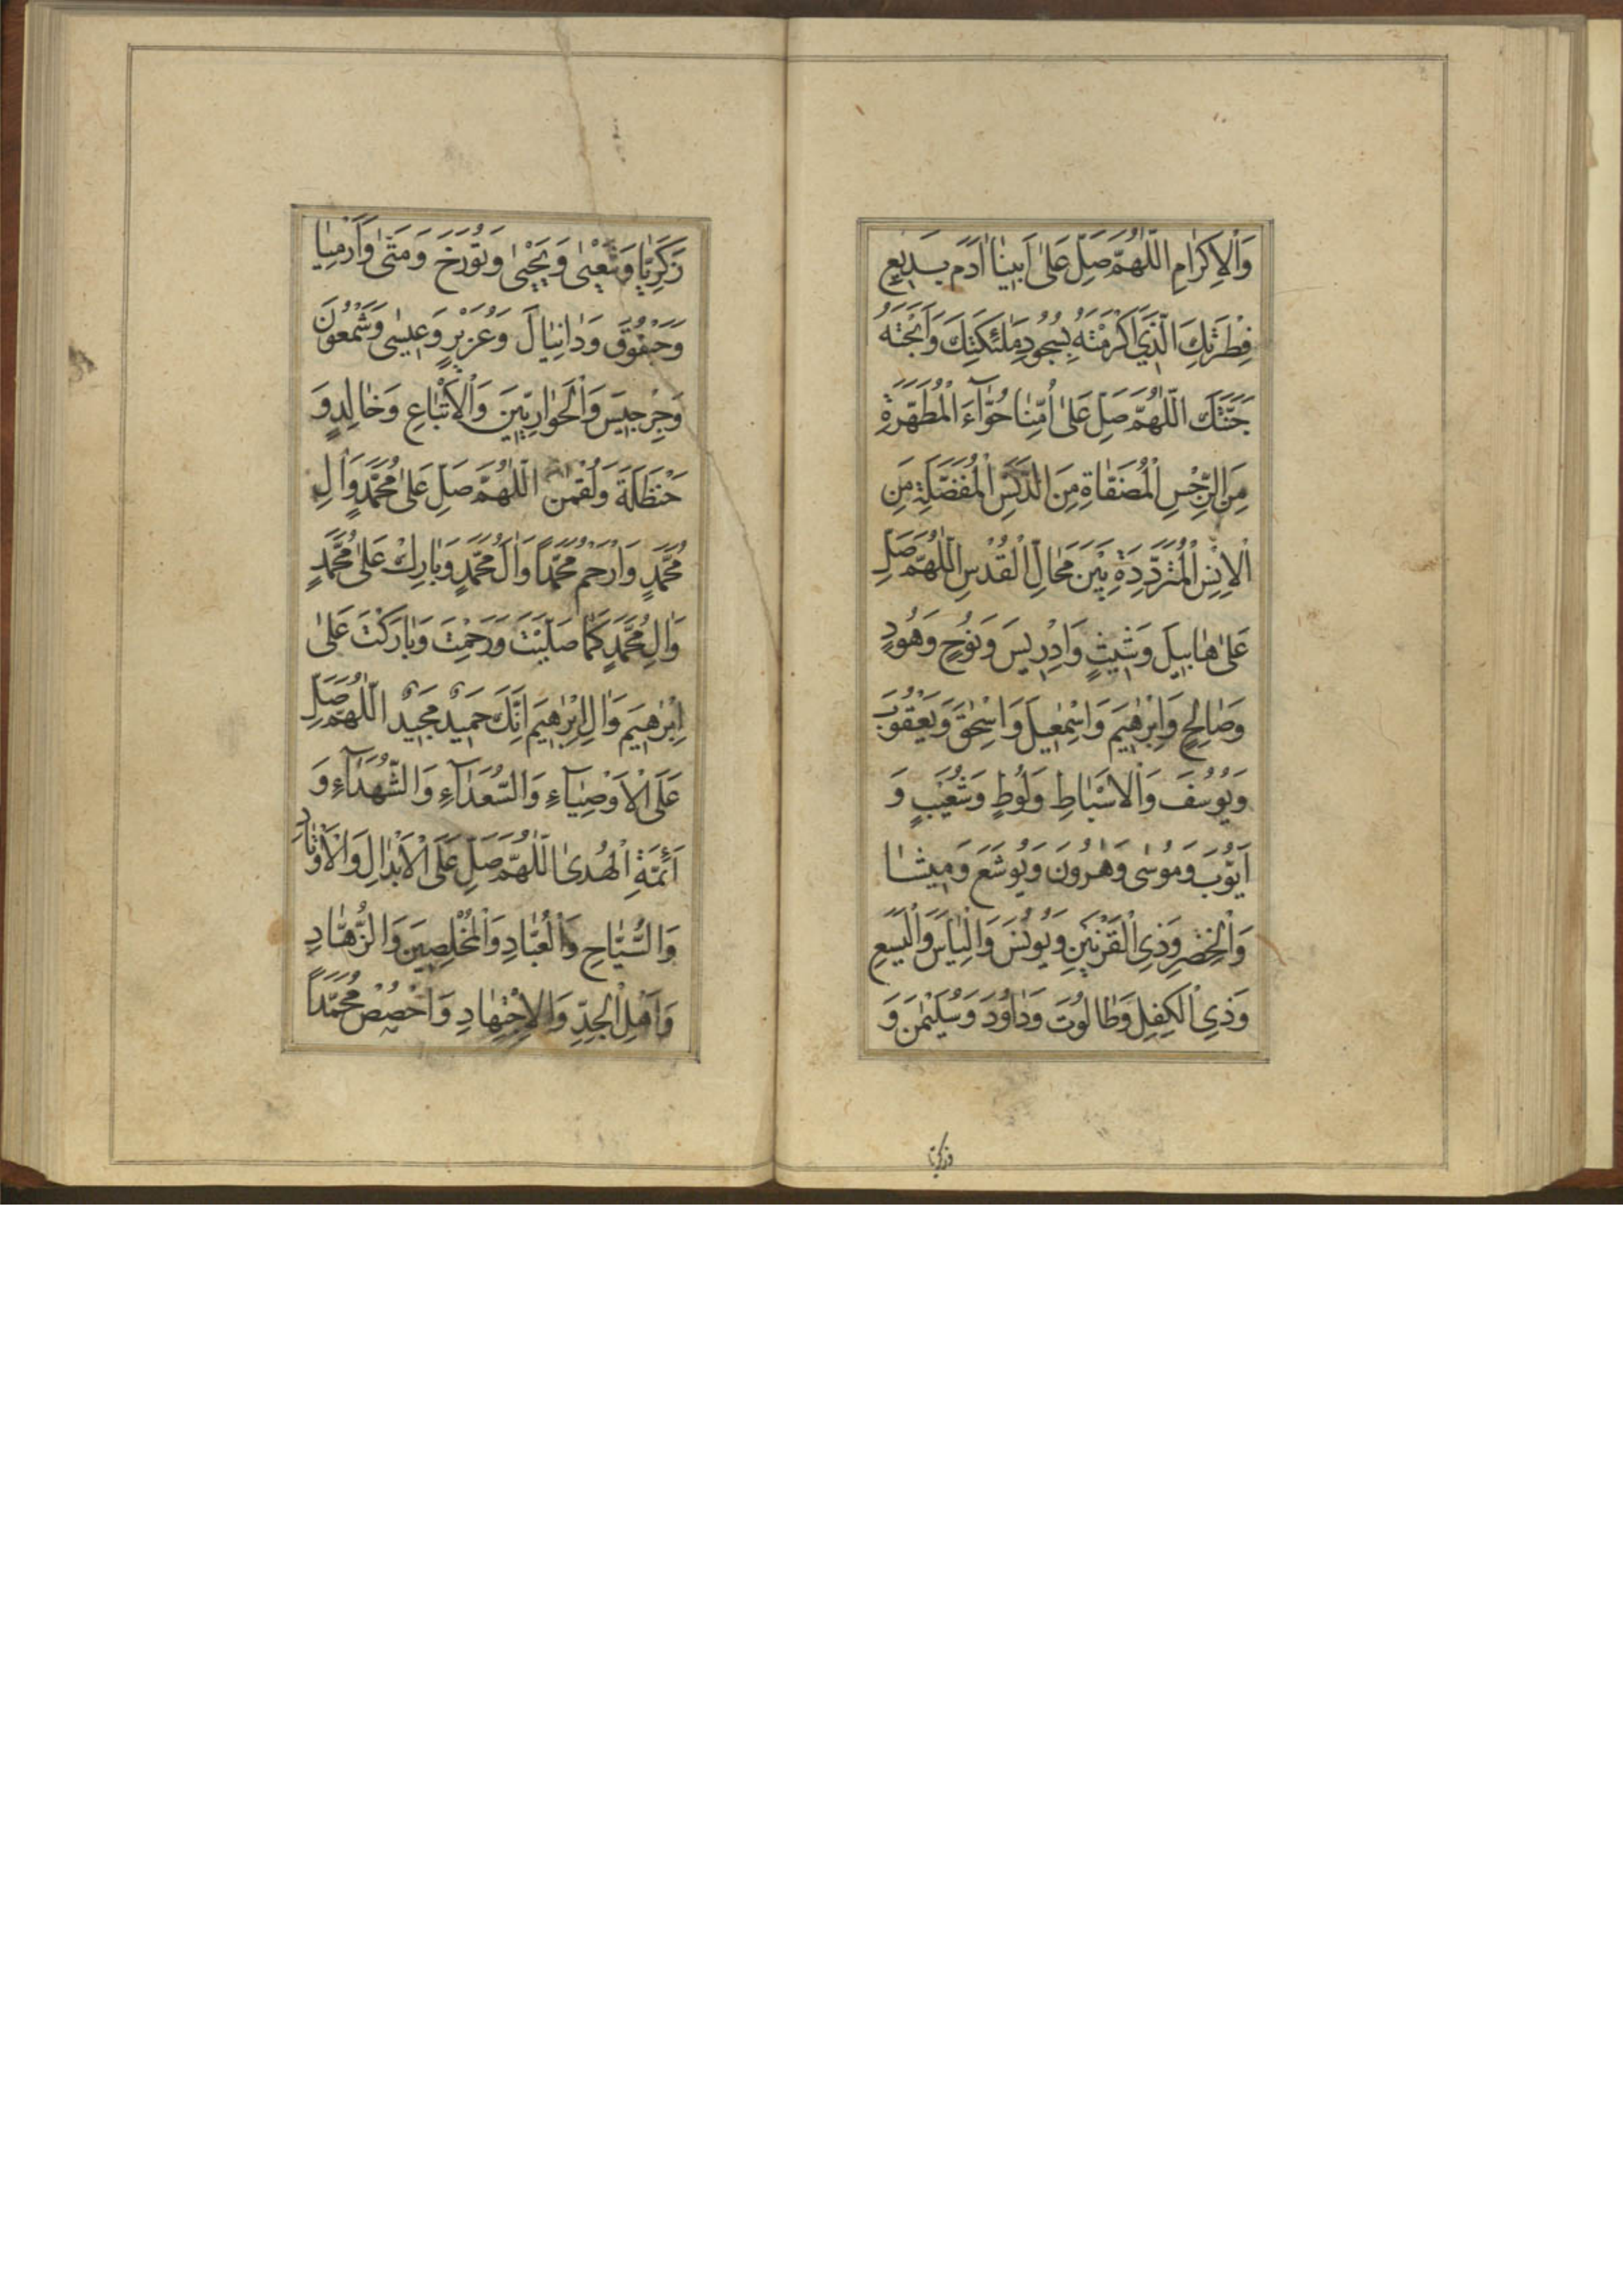 وَالْاِكْرٰامِ اَللّٰهُمَّ صَلِّ عَلىٰ اَبيناٰ اٰدَمَ بَديعِ
فِطْرَتِكَ الَّذَي اَكْرَمْتَهُ بِسُجُودِ مَلٰئِكَتِكَ وَاَبَحْتَهُ
جَنَّتَكَ اَللّٰهُمَّ صَلِّ عَلىٰ اُمِّنٰا حَوّٰآءَ الْمُطَهَّرَةِ
مِنَ الرِّجْسِ الْمُصَفّٰاةِ مِنَ الدَّنَسِ الْمُفَضَّلَةِ مِنَ
الْاِنْسِ الْمُتَرَدِّدَةِ بَيْنَ مَحٰالِّ الْقُدْسِ اَللّٰهُمَّ صَلِّ
عَلىٰ هٰابيلَ وَشيثٍ وَاِدْريسَ وَنوُحٍ وَهُودٍ
وَصٰالِحٍ وَاِبْرٰهيمَ وَاِسْمٰعيلَ وَاِسْحٰقَ وَيَعْقوُبَ
وَيوُسُفَ وَالْاَسْبٰاطِ وَلوُطٍ وَشُعَيْبٍ وَ
اَيّوُبَ وَموُسٰى وَهٰروُنَ وَيوُشَعَ وَميشٰا
وَالْخِضْرِ وَذِى الْقَرْنَيْنِ وَيوُنُسَ وَاِلْيٰاسَ وَالْيَسَعِ
وَذِى الْكِفْلِ وَطٰالوُتَ وَدٰاوُدَ وَسُلَيْمٰنَ وَ
وزكريا
زَكَرِيّٰا وَشَعْيٰى وَيَحْيىٰ وَتوُرَخَ وَمَتّىٰ وَاَرْمِيٰا
وَحَيْقوُقَ وَدٰانِيٰالَ وَعُزَيْرٍ وَعيسٰى وَشَمْعوُنَ
وَجِرْجيسَ وَالْحَوٰارِيّينَ وَالْاَتْبٰاعِ وَخٰالِدٍ وَ
حَنْظَلَةَ وَلُقْمٰنَ اَللّٰهُمَّ صَلِّ عَلىٰ مُحَمَّدٍ وَاٰلِ
مُحَمَّدٍ وَارْحَمْ مُحَمَّداً وَاٰلَ مُحَمَّدٍ وَبٰارِكْ عَلىٰ مُحَمَّدٍ
وَاٰلِ مُحَمَّدٍ كَمٰا صَلَّيْتَ وَرَحِمْتَ وَبٰارَكْتَ عَلىٰ
اِبْرٰهيمَ وَاٰلِ اِبْرٰهيمَ اِنَّكَ حَميدٌ مَجيدٌ اَللّٰهُمَّ صَلِّ
عَلَى الْاَوْصِيٰآءِ وَالسُّعَدٰآءِ وَالشُّهَدٰآءِ وَ
اَئِمَّةِ الْهُدىٰ اَللّٰهُمَّ صَلِّ عَلَى الْاَبْدٰالِ وَالْاَوْتٰادِ
وَالسُّيّٰاحِ وَالْعُبّٰادِ وَالْمُخْلِصينَ وَالزُّهّٰادِ
وَاَهْلِ الْجِدِّ وَالْاِجْتِهٰادِ وَاخْصُصْ مُحَمَّداً